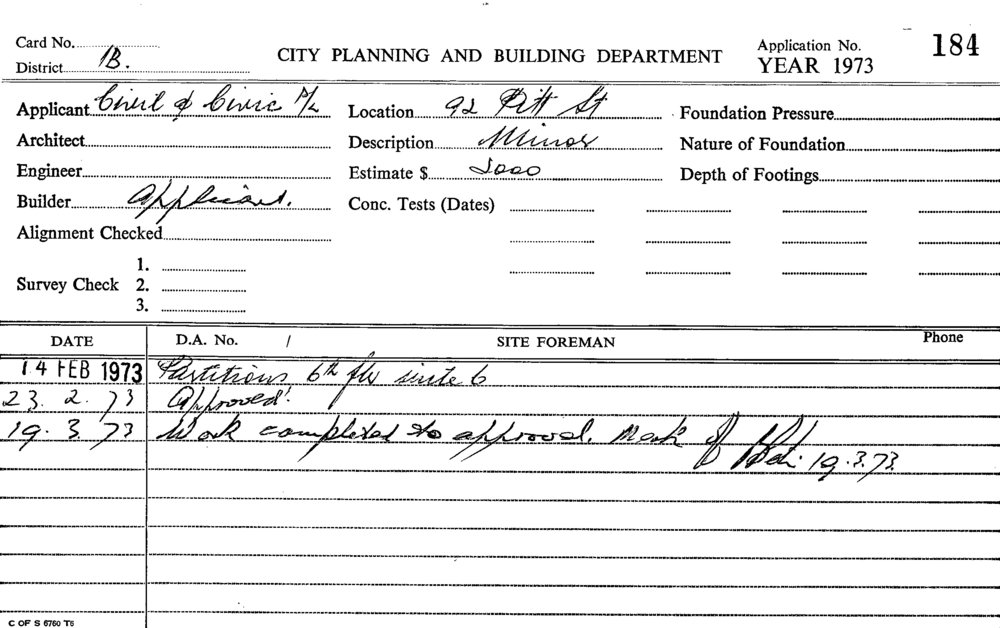 Card No. CITY PLANNING AND BUILDING DEPARTMENT Application No. 184
District 1B. YEAR 1973
Applicant Civil & Civic P/L Location 92 Pitt St Foundation Pressure
Architect Description Minor Nature of Foundation
Engineer Estimate $ Depth of Footings
Builder Applicant. Conc. Tests (Dates)
Alignment Checked
1.
Survey Check 2.
3.
DATE D.A. No. / SITE FOREMAN Phone
14 FEB 1973 Partitions 6th flr suite 6
23. 2. 73 Approved.
19. 3. 73 Work completed to approval.
19.3.73
C OF S 6760 T6